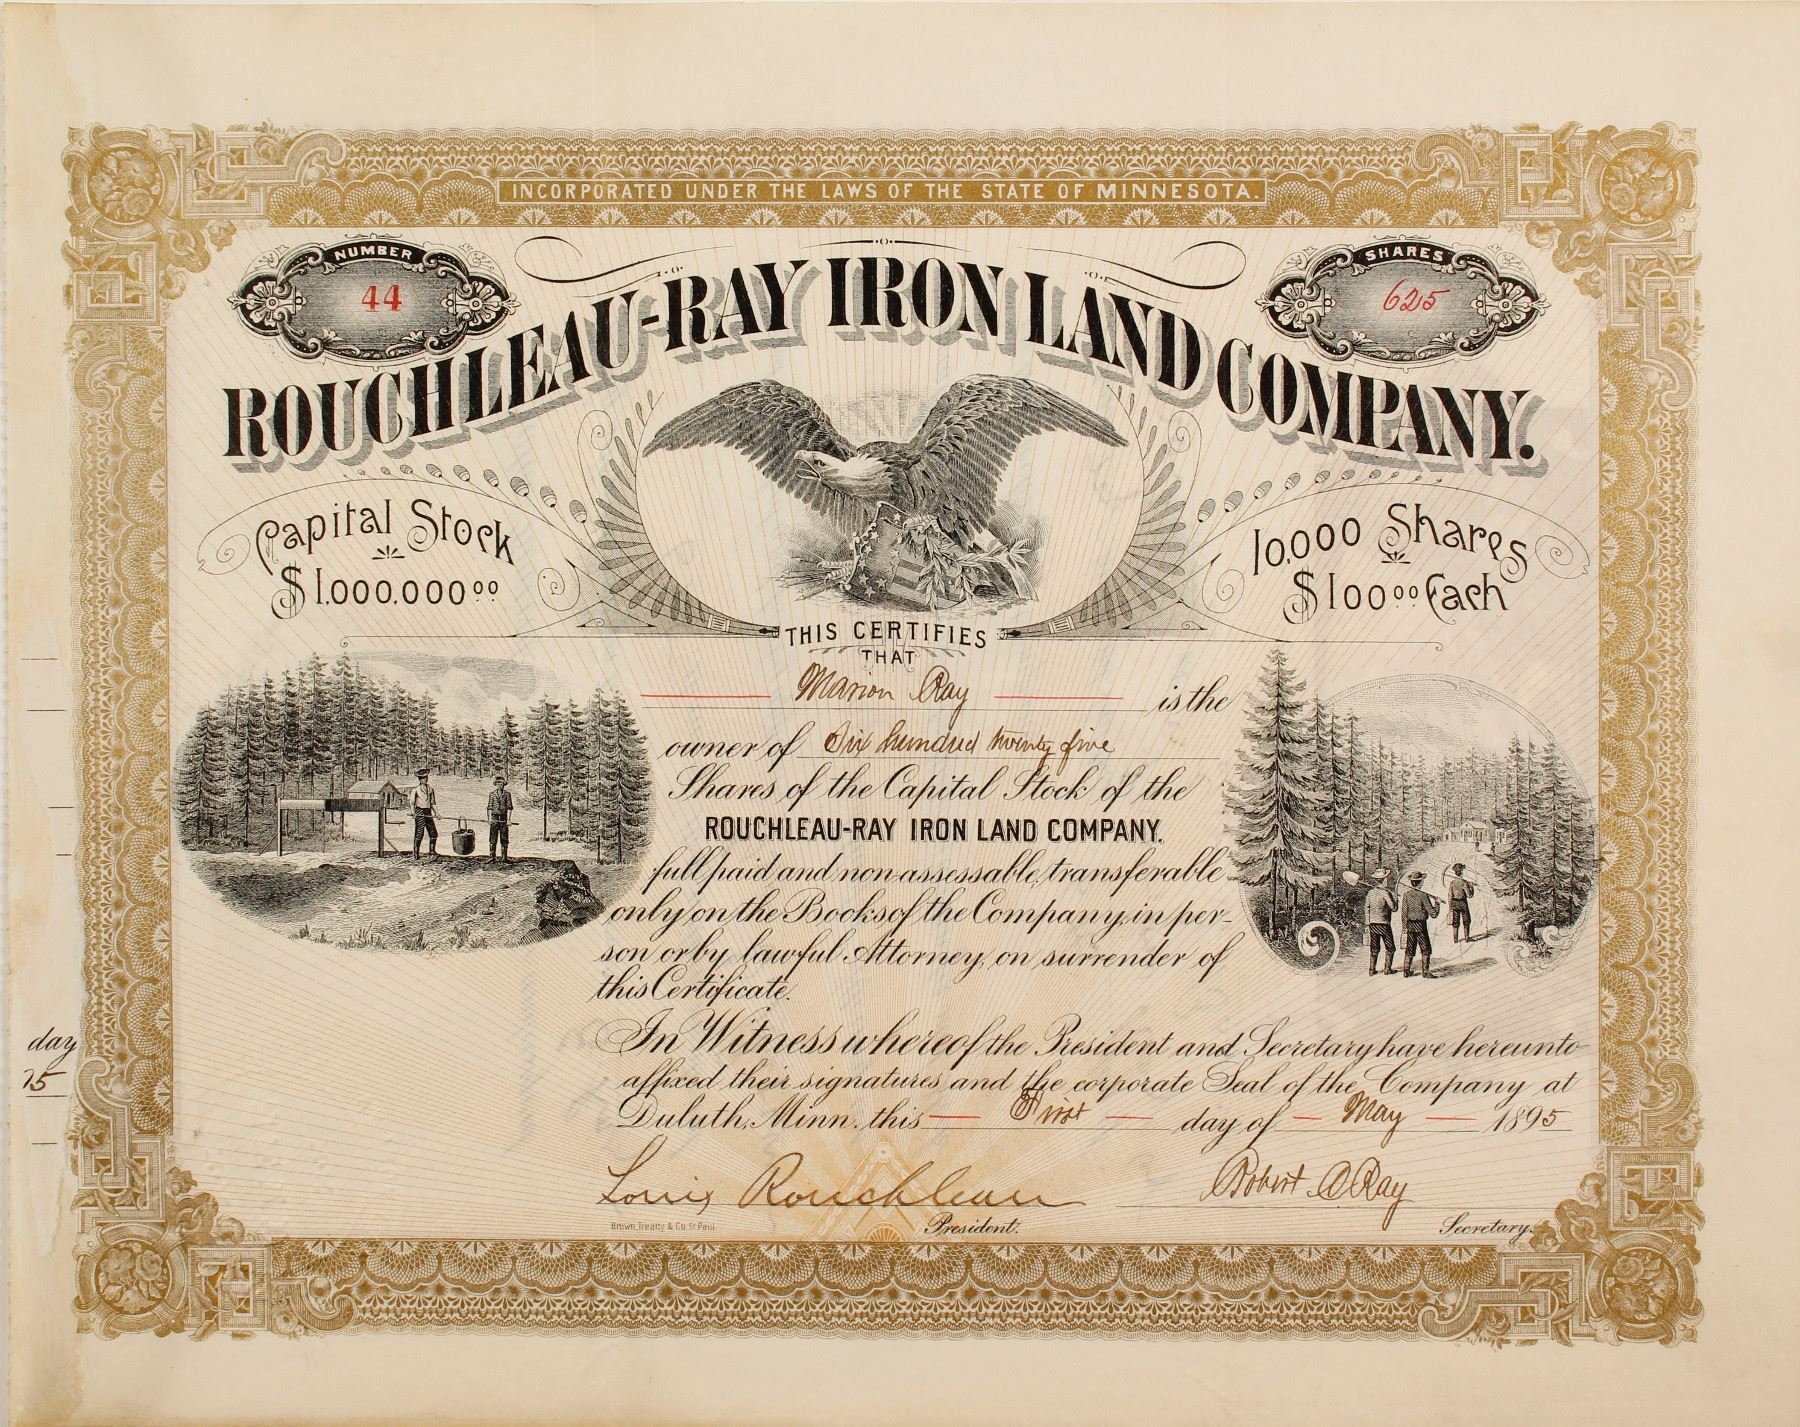 INCORPORATED UNDER THE LAWS OF THE STATE OF MINNESOTA.
NUMBER
44
SHARES
625
ROUCHLEAU-RAY IRON LAND COMPANY.
Capital Stock
$1,000,000 00
10,000 Shares
$100 00 Each
THIS CERTIFIES
THAT
Marion Ray is the
owner of Six hundred twenty five
Shares of the Capital Stock of the
ROUCHLEAU-RAY IRON LAND COMPANY.
full paid and non-assessable, transferable
only on the Books of the Company, in per-
son or by lawful Attorney, on surrender of
this Certificate.
In Witness whereof the President and Secretary have hereunto
affixed their signatures and the corporate Seal of the Company at
Duluth, Minn. this First day of May 1895
day
95
Louis Rouchleau
Robert C Ray
Brown, Treacy & Co. St. Paul
President.
Secretary.